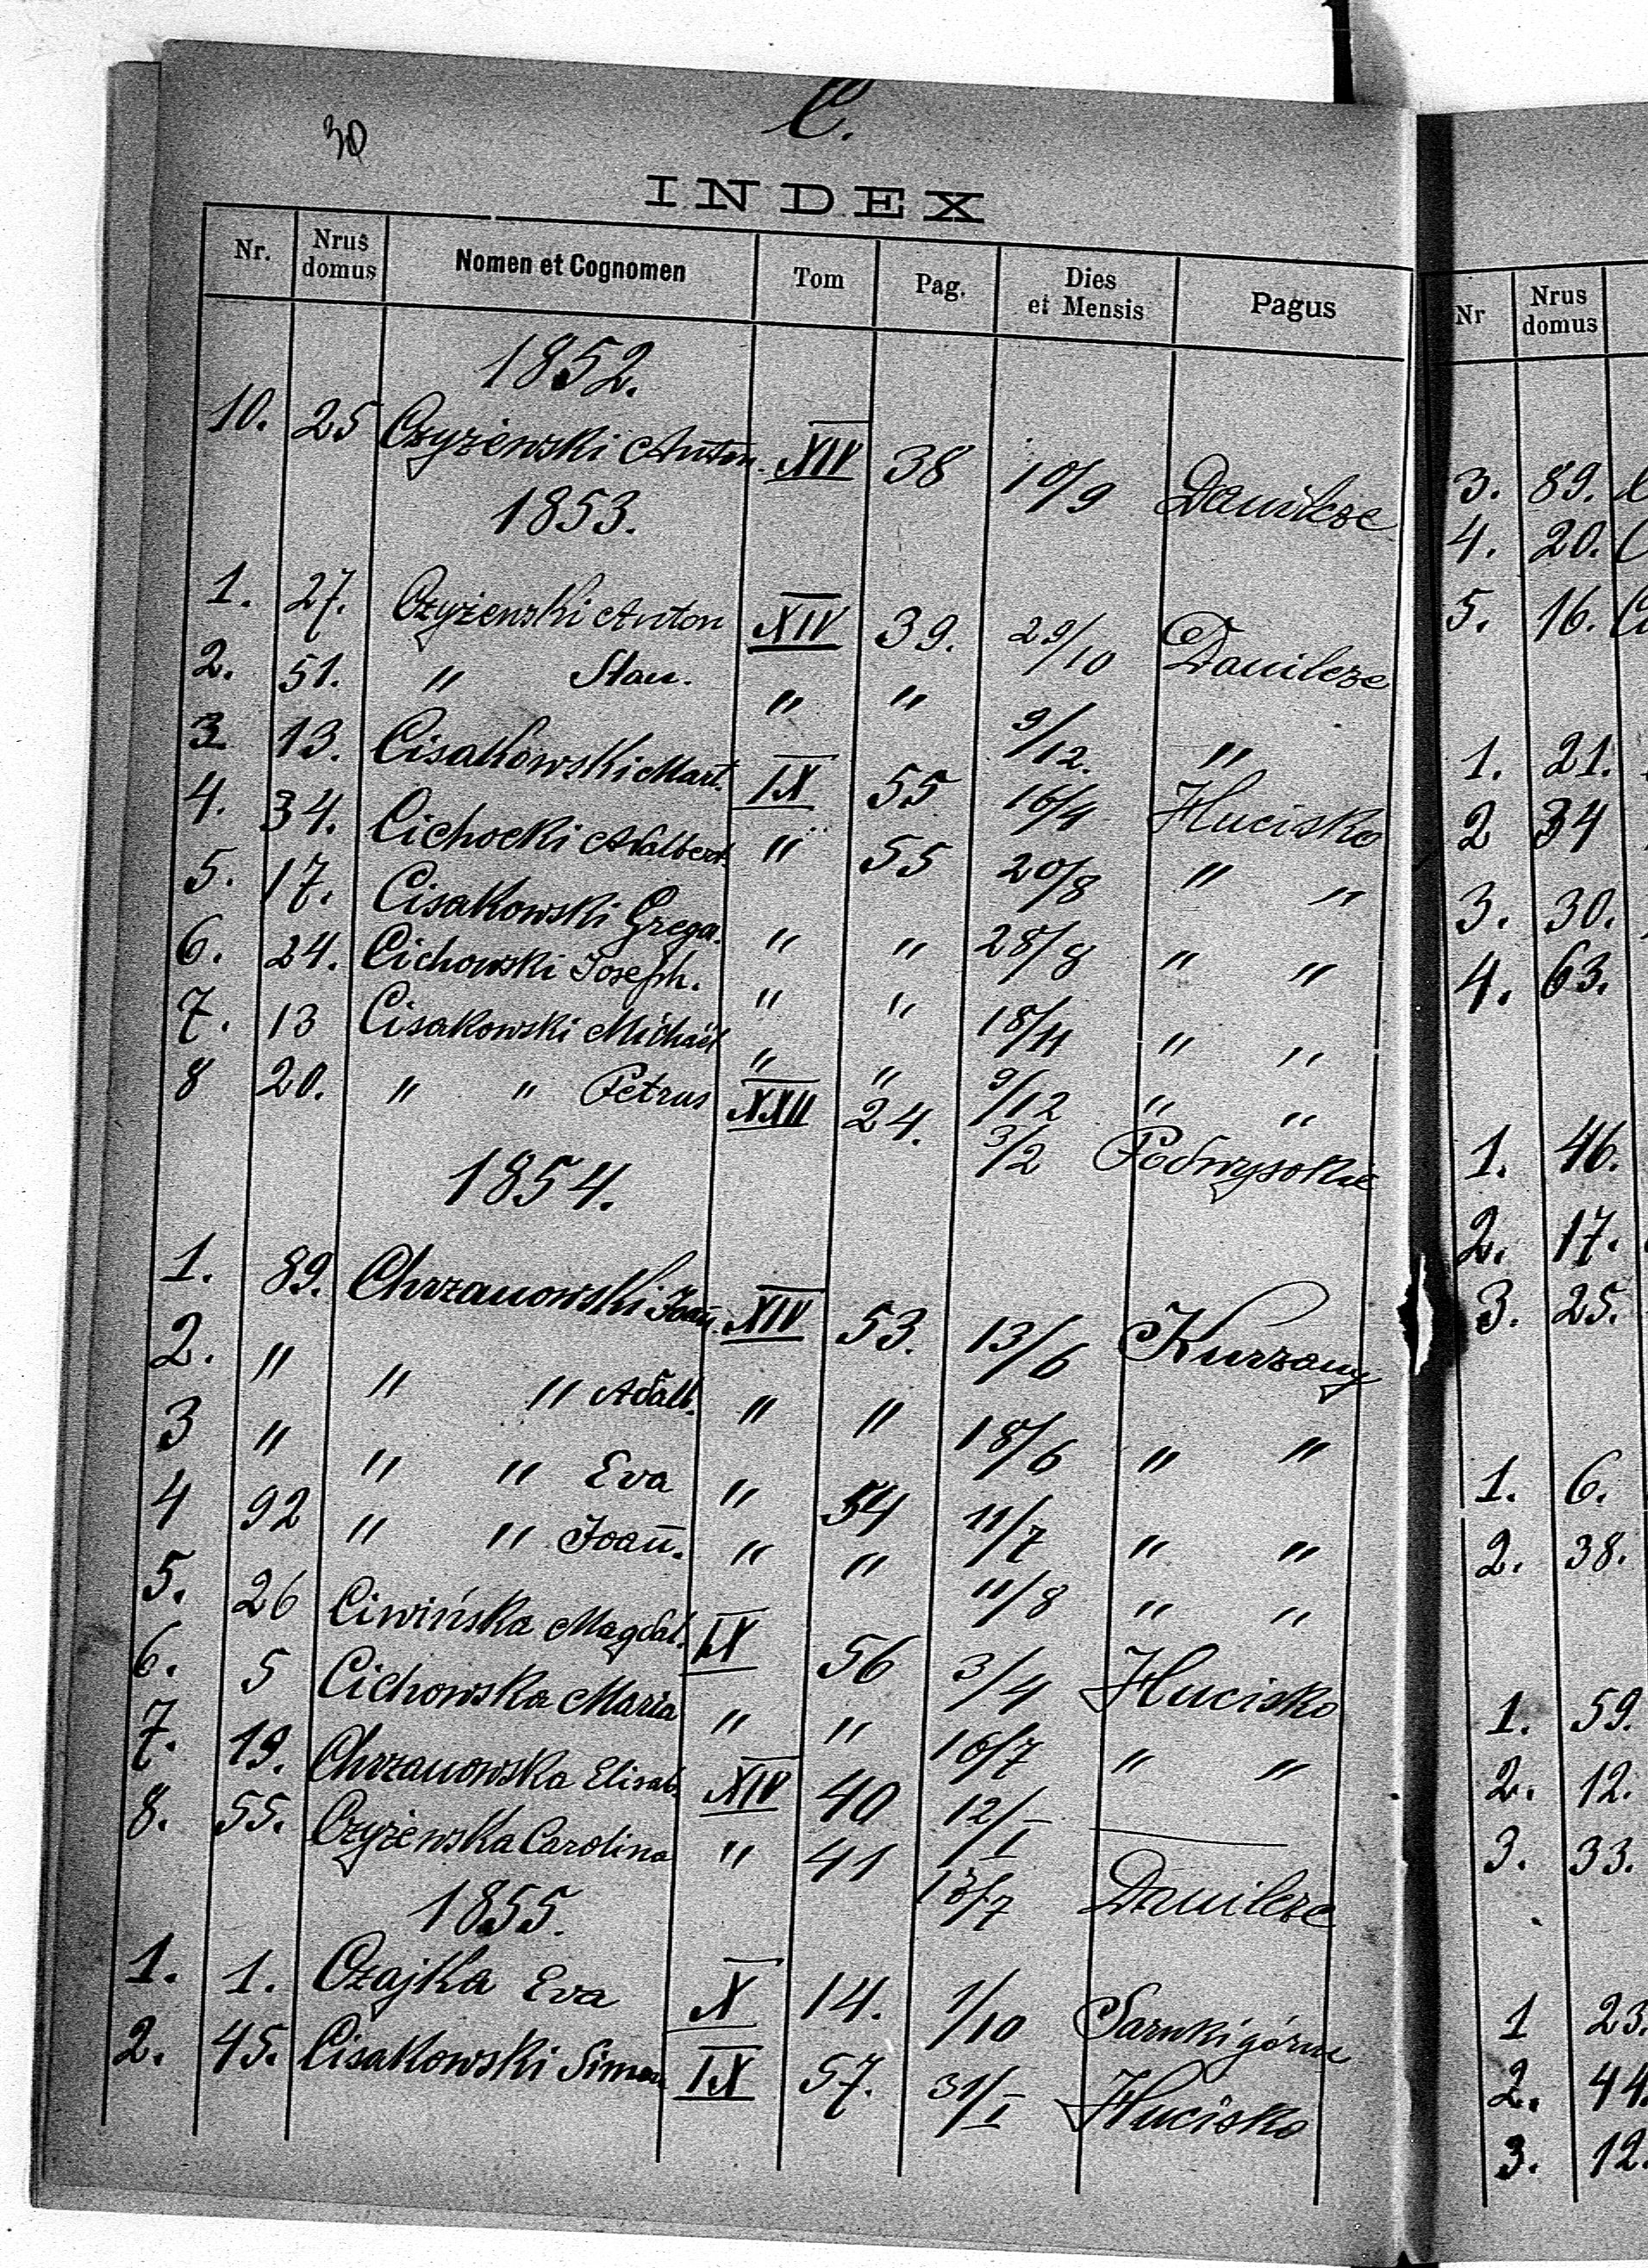 30
C.
INDEX
Nr. Nrus domus Nomen et Cognomen Tom Pag. Dies et Mensis Pagus
1852.
10. 25 Czyżewski Anton. XIV 38 10/9 Danilcze
1853.
1. 27. Czyżewski Anton XIV 39. 29/10 Danilcze
2. 51. " Stan. " " 9/12. "
3. 13. Cisakowski Mart. IX 55 16/4 Hucisko
4. 34. Cichocki Adalbert. " 55 20/8 " "
5. 17. Cisakowski Grega. " " 28/8 " "
6. 24. Cichowski Joseph. " " 18/11 " "
7. 13 Cisakowski Michael " " 9/12 " "
8 20. " " Petrus XXII 24. 3/2 Podwysokie
1854.
1. 89. Chrzanowski Joan. XIV 53. 13/6 Kurzany
2. " " " Adalb. " " 18/6 " "
3 " " " Eva " 54 11/7 " "
4 92 " " Joan̄. " " 11/8 " "
5. 26 Ciwińska Magdal. IX 56 3/4 Hucisko
6. 5 Cichowska Maria " " 16/7 " "
7. 19. Chrzanowska Elisab. XIV 40 12/I —
8. 55. Czyżewska Carolina " 41 13/7 Danilcze
1855.
1. 1. Czajka Eva X 14. 1/10 Sarnki górne
2. 45. Cisakowski Simon IX 57. 31/I Hucisko
Nr Nrus domus
3. 89.
4. 20.
5. 16.
1. 21.
2 34
3. 30.
4. 63.
1. 46.
2. 17.
3. 25.
1. 6.
2. 38.
1. 59.
2. 12.
3. 33.
1 23.
2. 44.
3. 12.